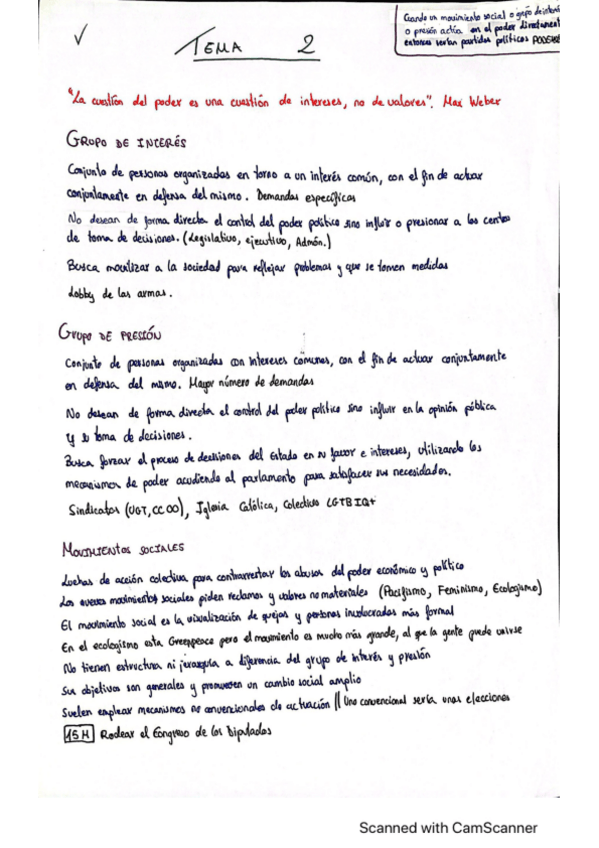 Cuando un movimiento social o grupo de interés
o presión actúa en el poder directamente
entonces serían partidos políticos PODEMOS
✓
TEMA 2
"La cuestión del poder es una cuestión de intereses, no de valores". Max Weber
GRUPO DE INTERÉS
Conjunto de personas organizadas en torno a un interés común, con el fin de actuar
conjuntamente en defensa del mismo. Demandas específicas
No desean de forma directa el control del poder político sino influir o presionar a los centros
de toma de decisiones. (Legislativo, ejecutivo, Admón.)
Busca movilizar a la sociedad para reflejar problemas y que se tomen medidas
Lobby de las armas.
GRUPO DE PRESIÓN
Conjunto de personas organizadas con intereses comunes, con el fin de actuar conjuntamente
en defensa del mismo. Mayor número de demandas
No desean de forma directa el control del poder político sino influir en la opinión pública
y la toma de decisiones.
Busca forzar el proceso de decisiones del Estado en su favor e intereses, utilizando los
mecanismos de poder acudiendo al parlamento para satisfacer sus necesidades.
Sindicatos (UGT, CCOO), Iglesia Católica, Colectivo LGTBIQ+
MOVIMIENTOS SOCIALES
Luchas de acción colectiva para contrarrestar los abusos del poder económico y político
Los nuevos movimientos sociales piden reclamos y valores no materiales (Pacifismo, Feminismo, Ecologismo)
El movimiento social es la visualización de quejas y personas involucradas más formal
En el ecologismo esta Greenpeace pero el movimiento es mucho más grande, al que la gente puede unirse
No tienen estructura ni jerarquía a diferencia del grupo de interés y presión
Sus objetivos son generales y promueven un cambio social amplio
Suelen emplear mecanismos no convencionales de actuación || Uno convencional sería unas elecciones
15M Rodear el Congreso de los Diputados
Scanned with CamScanner